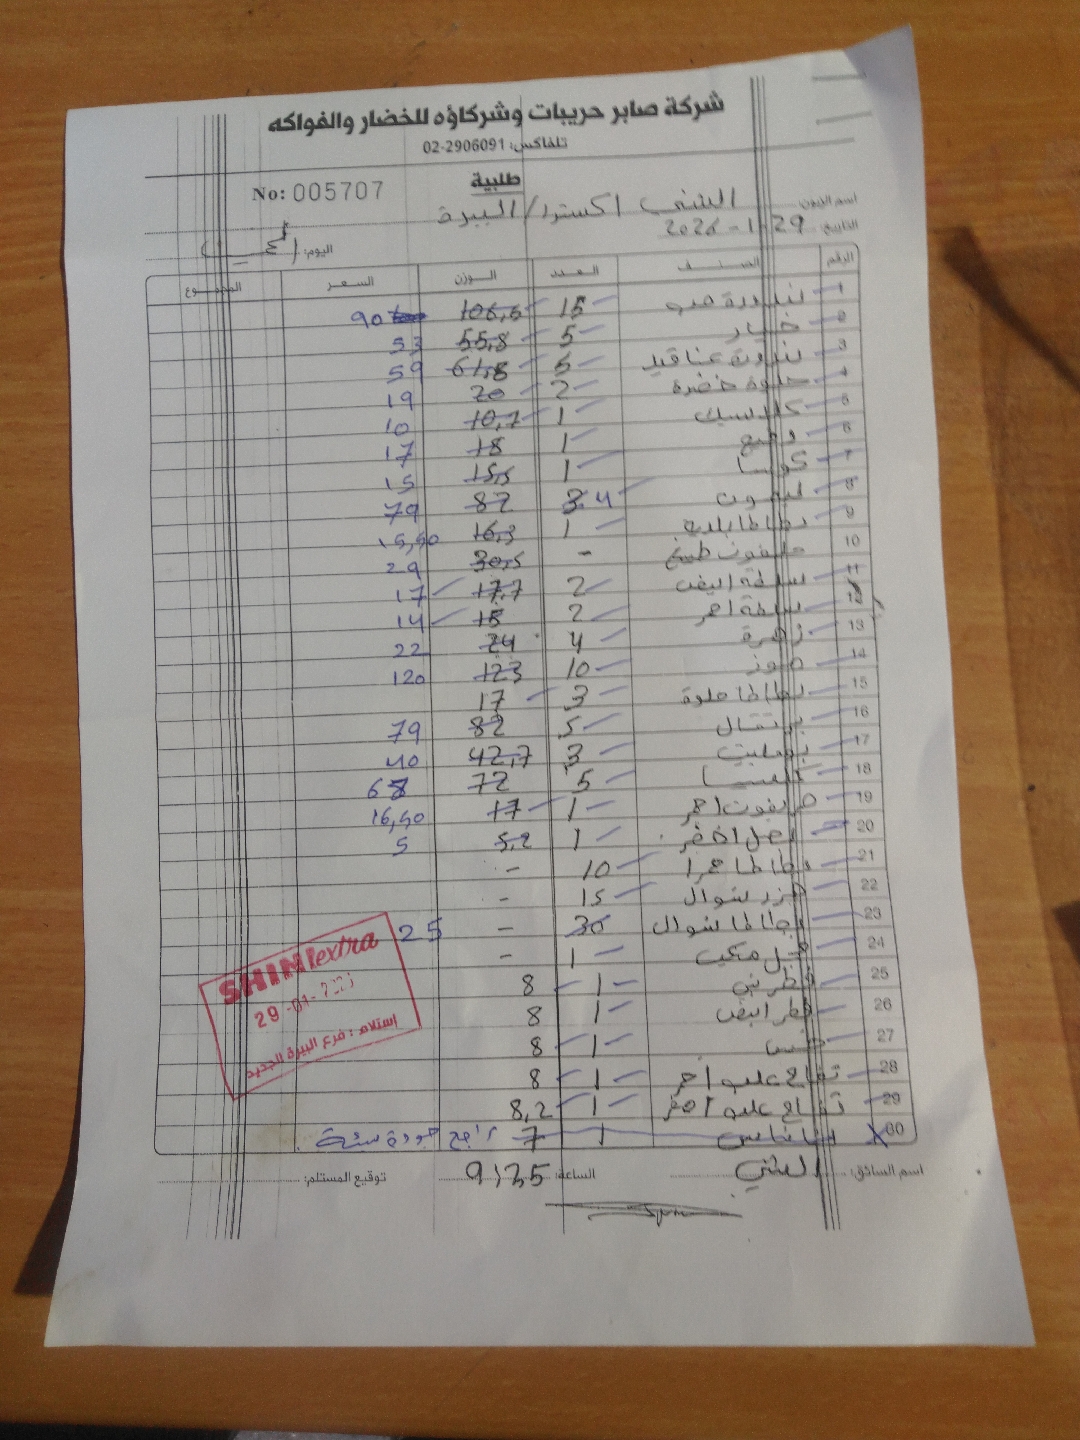 شركة صابر حريبات وشركاؤه للخضار والفواكه
تلفاكس: 02-2906091
طلبية
No: 005707
اسم الزبون: الشني اكسترا / البيرة
التاريخ: 29 / 1 - 2026
اليوم:
الرقم الصنف العدد الوزن السعر المجموع
1 بندورة حب 15 106,5 90
2 خيار 5 55,8 53
3 بندورة عناقيد 5 61,8 59
4 حلوة خضرة 2 20 19
5 1 10,7 10
6 1 18 17
7 كوسا 1 15,5 15
8 ليمون 4 82 79
9 بطاطا بلدية 1 16,3 15,50
10 طبيخ - 30,5 29
11 سلطة ابيض 2 17,7 17
12 سلطة احمر 2 15 14
13 زهرة 4 24 22
14 موز 10 123 120
15 بطاطا حلوة 3 17
16 برتقال 5 82 79
17 بومليت 3 42,7 40
18 5 72 68
19 جريفوت احمر 1 17 16,50
20 بصل اخضر 1 5,2 5
21 بطاطا حمرا 10 -
22 جزر شوال 15 -
23 بطاطا شوال 30 - 25
24 1 -
25 فطر بني 1 8
26 فطر ابيض 1 8
27 خس 1 8
28 تفاح علب احمر 1 8
29 تفاح علب اصفر 1 8,2
30 اناناس 1 7 راجع جودة سيئة
SHINI extra
29-01-2026
إستلام: فرع البيرة الجديد
اسم السائق: المثني الساعة: 9:35 توقيع المستلم: